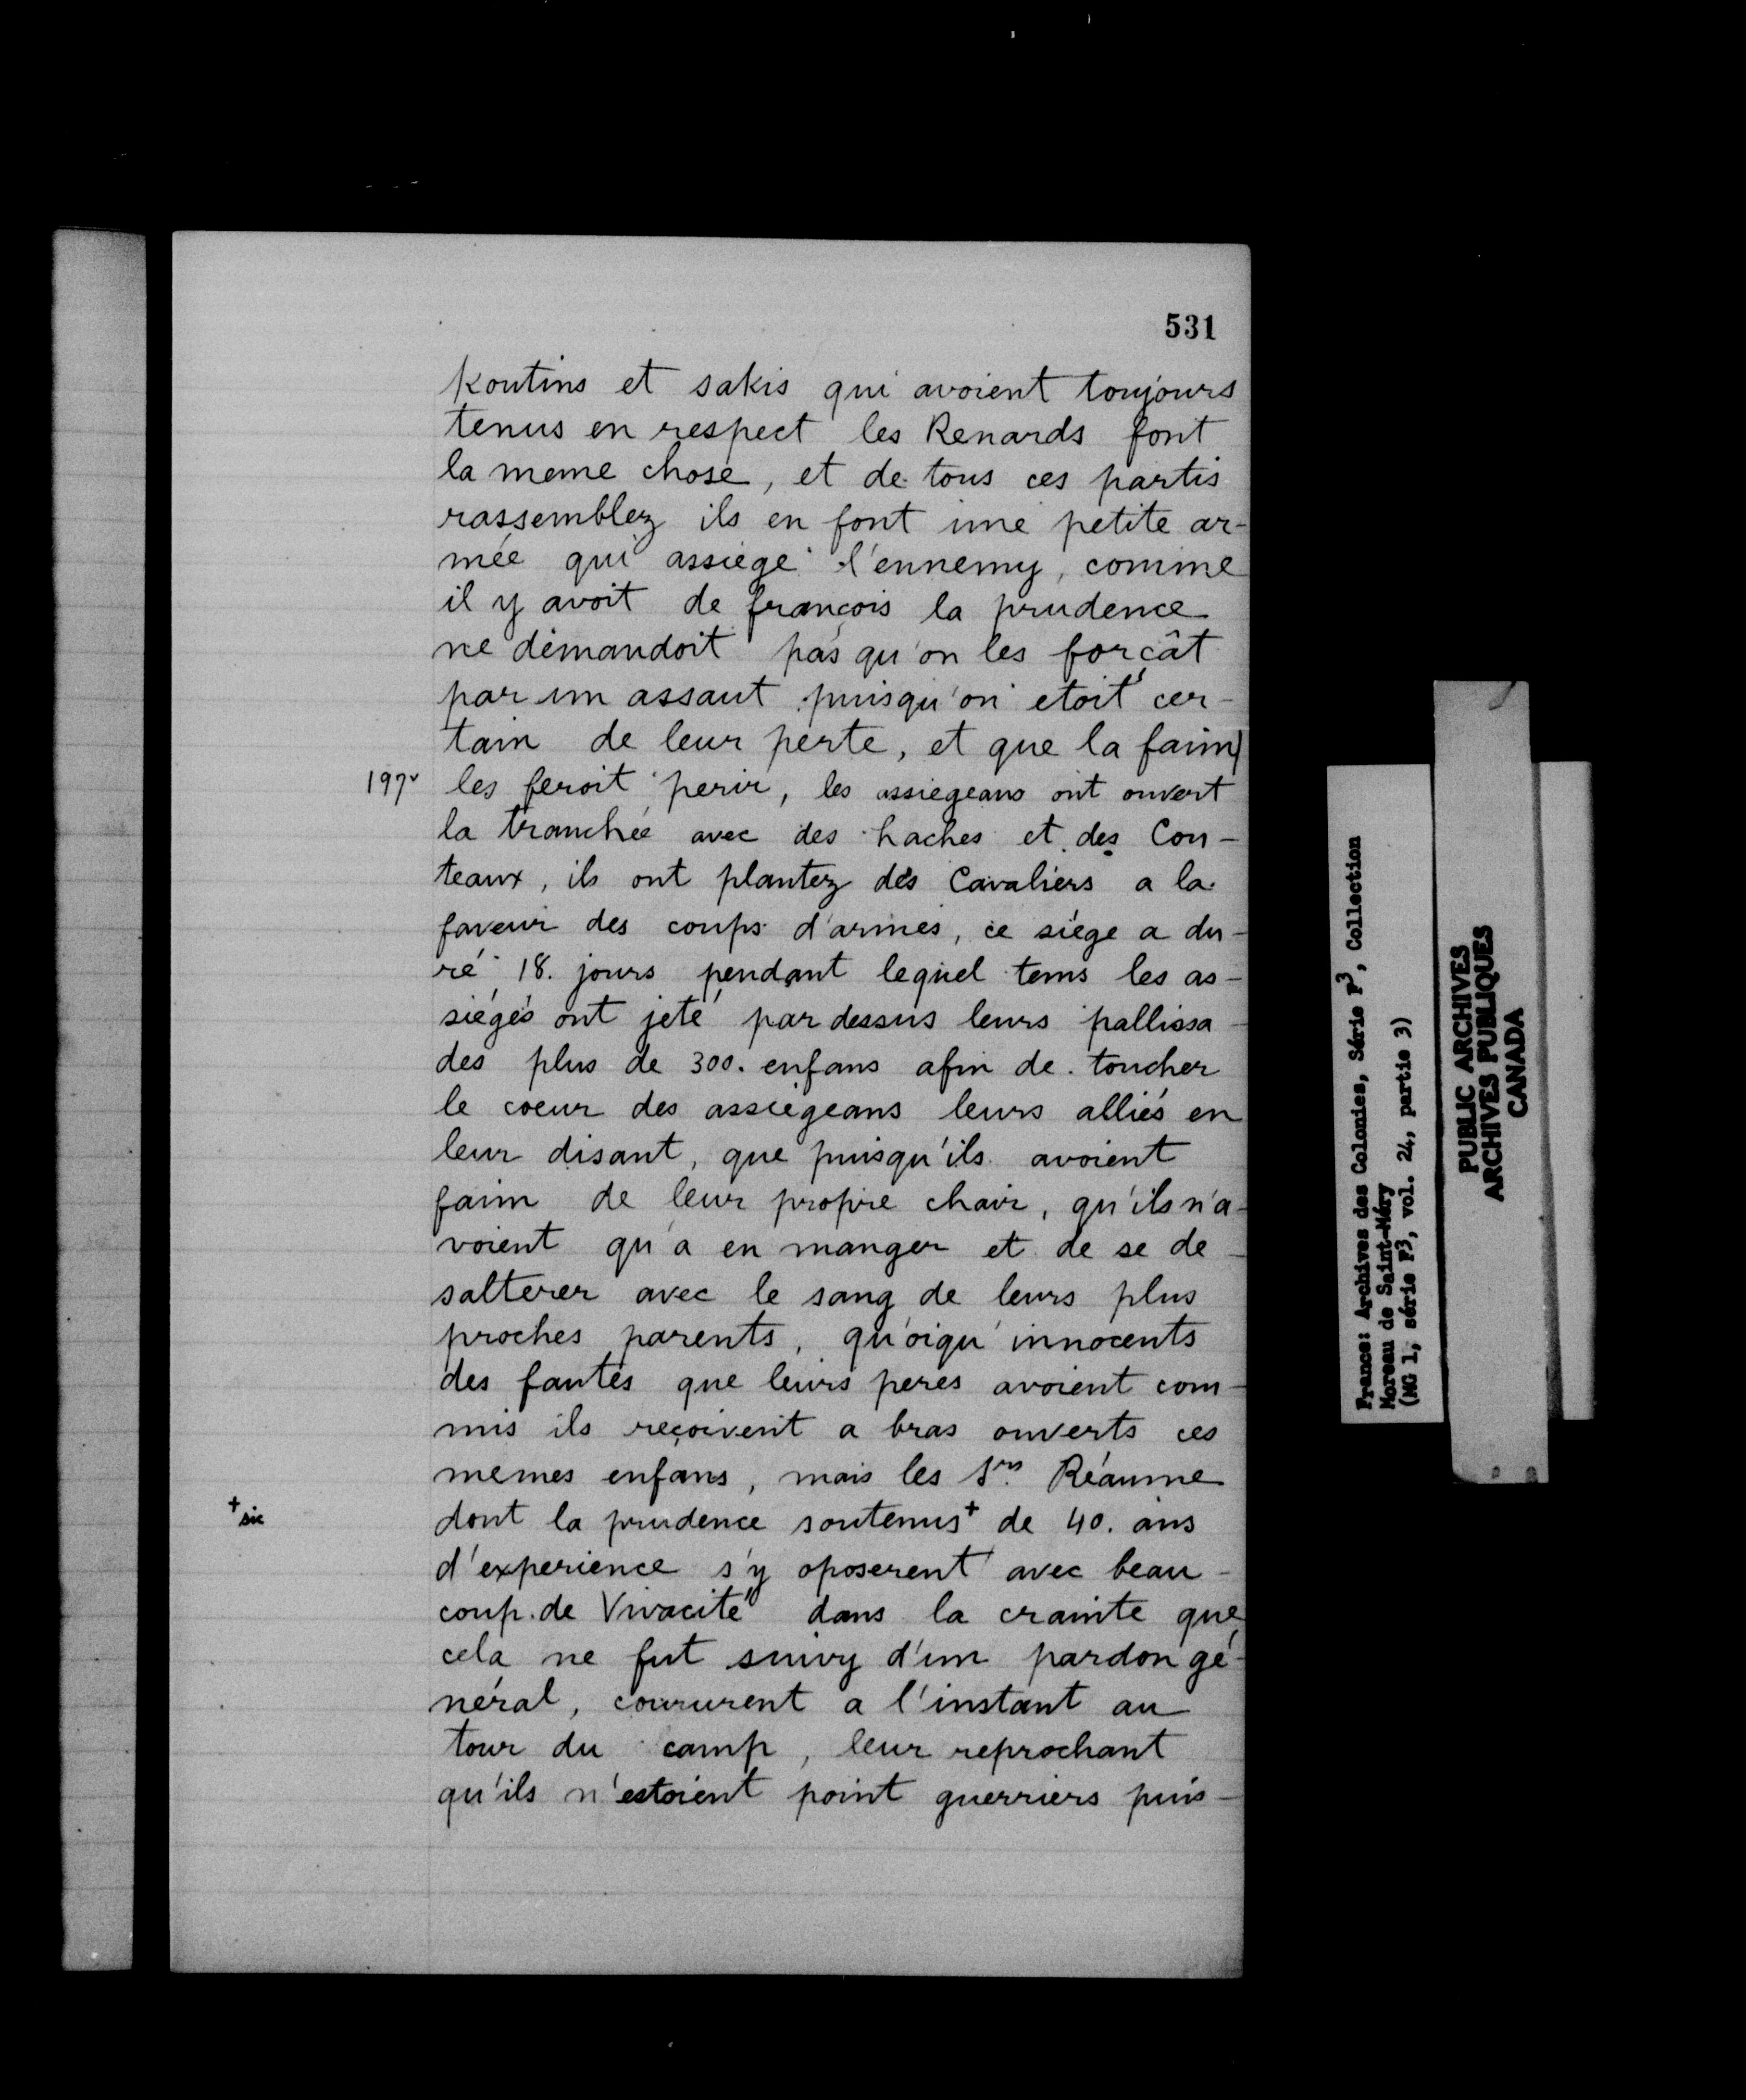 531
koutins et sakis qui avoient toujours
tenus en respect les Renards font
la meme chose, et de tous ces partis
rassemblez ils en font une petite ar-
mée qui assiege l'ennemy, comme
il y avoit de françois la prudence
ne demandoit pas qu'on les forçât
par un assaut puisqu'on etoit cer-
tain de leur perte, et que la faim
197v les feroit perir, les assiegeans ont ouvert
la tranchée avec des haches et des Cou-
teaux, ils ont plantez des Cavaliers a la
faveur des coups d'armes, ce siége a du-
ré 18. jours pendant lequel tems les as-
siégés ont jeté par dessus leurs pallissa-
des plus de 300. enfans afin de toucher
le coeur des assiegeans leurs alliés en
leur disant, que puisqu'ils avoient
faim de leur propre chair, qu'ils n'a-
voient qu'a en manger et de se de-
salterer avec le sang de leurs plus
proches parents, qu'oiqu'innocents
des fautes que leurs peres avoient com-
mis ils reçoivent a bras ouverts ces
memes enfans, mais les Srs Réaume
+ sic dont la prudence soutenus+ de 40. ans
d'experience s'y oposerent avec beau-
coup de Vivacité dans la crainte que
cela ne fut suivy d'un pardon gé-
néral, coururent a l'instant au
tour du camp, leur reprochant
qu'ils n'estoient point guerriers puis-
France: Archives des Colonies, Série F3, Collection
Moreau de Saint-Méry
(MG 1, série F3, vol. 24, partie 3)
PUBLIC ARCHIVES
ARCHIVES PUBLIQUES
CANADA